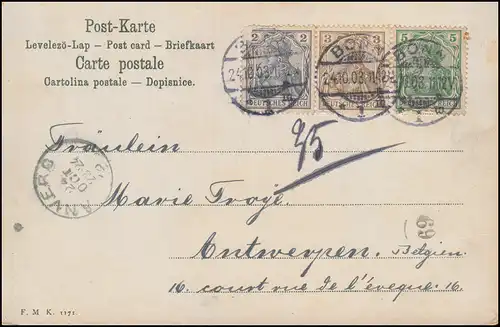 Post-Karte
Levelező-Lap — Post card — Briefkaart
Carte postale
Cartolina postale — Dopisnice.
2 2
DEUTSCHES REICH
3 3
DEUTSCHES REICH
5 5
BONN
24.10.03.11-12
1
BONN
Fräulein
Marie Troye.
Antwerpen. Belgien.
16. const rue de l'eveque 16.
69
OCT
F. M. K. 1171.